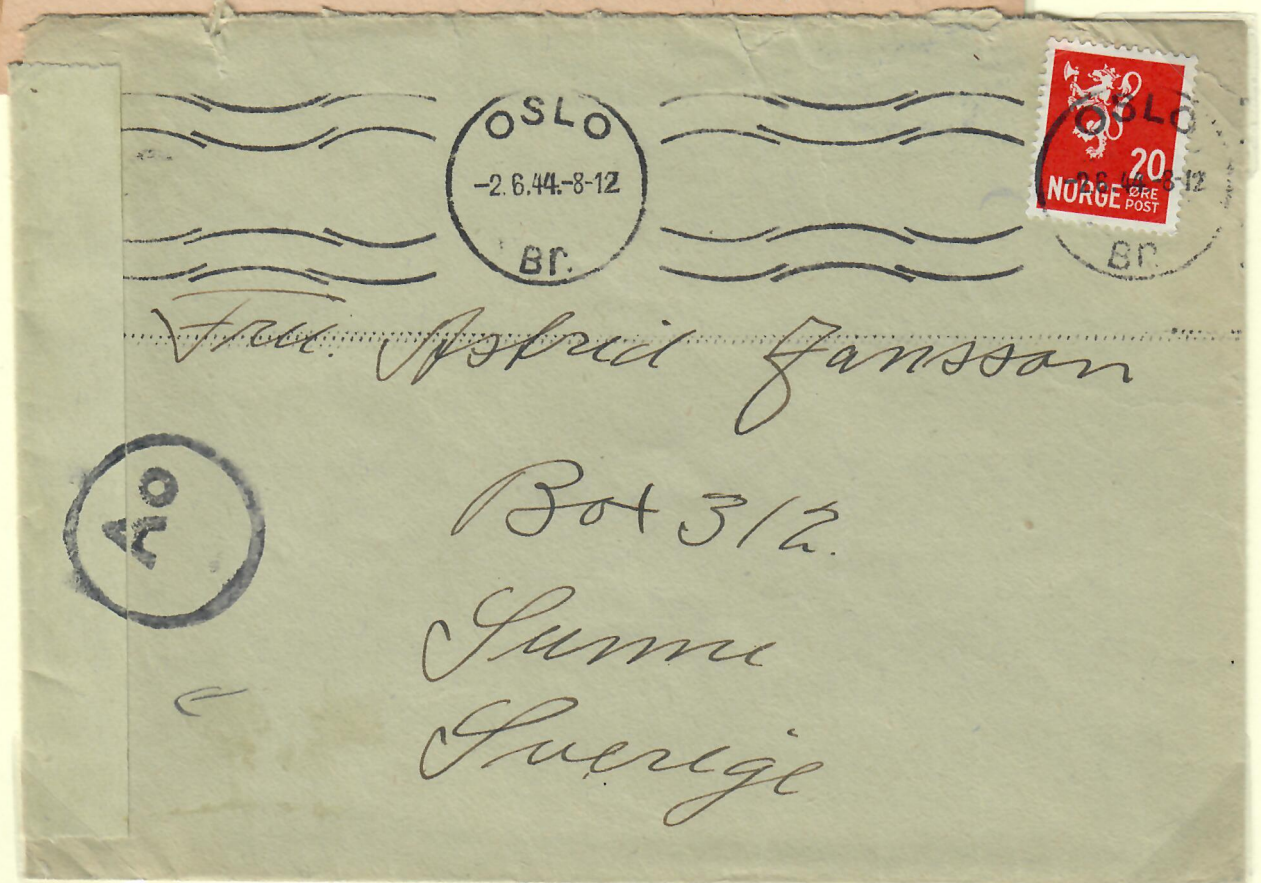 OSLO
-2.6.44.-8-12
Br.
OSLO
-2.6.44.-8-12
Br.
20
NORGE ØRE
POST
Fru. Astrid Jansson
Box 312.
Sunne
Sverige
Ao